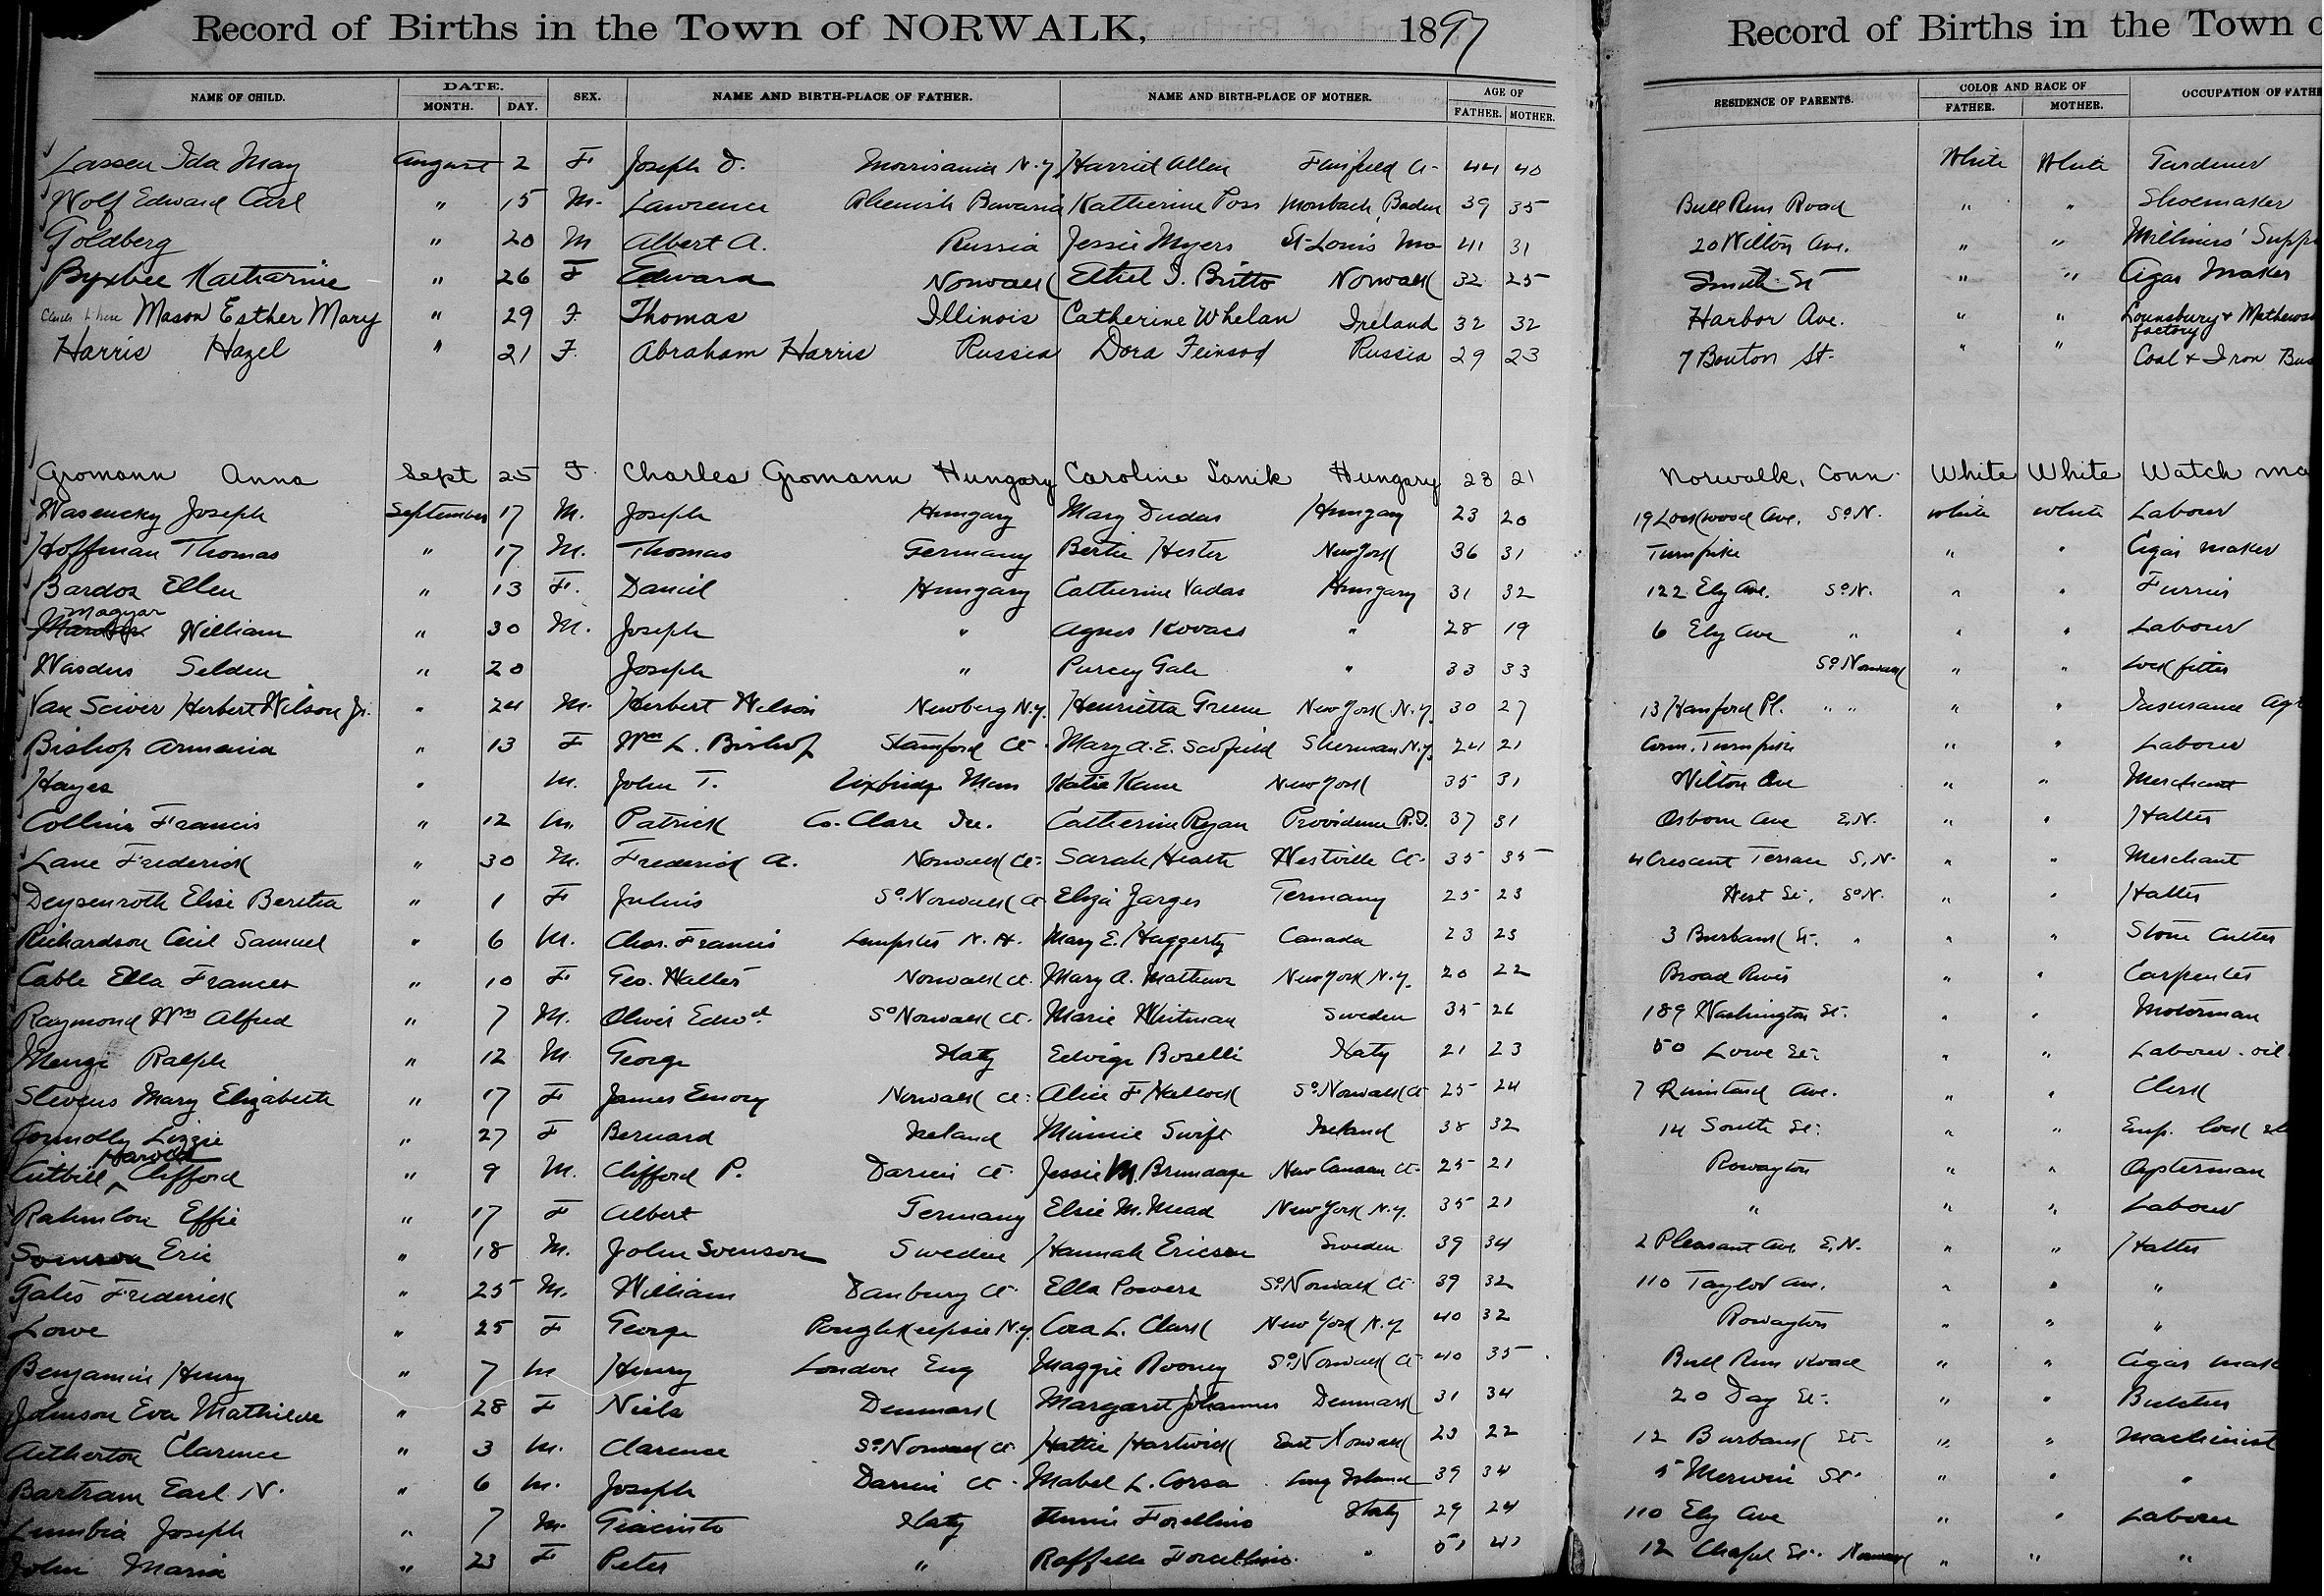 Record of Births in the Town of NORWALK, 1897 Record of Births in the Town o
NAME OF CHILD. DATE. MONTH. DAY. SEX. NAME AND BIRTH-PLACE OF FATHER. NAME AND BIRTH-PLACE OF MOTHER. AGE OF FATHER. MOTHER. RESIDENCE OF PARENTS. COLOR AND RACE OF FATHER. MOTHER. OCCUPATION OF FATHE
Lassen Ida May August 2 F Joseph D. Morrisania N.Y Harriet Allen Fairfield Ct. 44 40 White White Gardener
Wolf Edward Carl " 15 M. Lawrence Rhenish Bavaria Katherine Poss Mosbach, Baden 39 35 Bull Run Road " " Shoemaker
Goldberg " 20 M Albert A. Russia Jessie Myers St-Louis Mo 41 31 20 Wilton Ave. " " Milliners' Supp
Byxbee Katharine " 26 F Edward Norwalk Ethel I. Britto Norwalk 32 25 Smith St " " Cigar Maker
Mason Esther Mary " 29 F. Thomas Illinois Catherine Whelan Ireland 32 32 Harbor Ave. " " Lounsbury & Mathewson factory
Harris Hazel " 21 F. Abraham Harris Russia Dora Feinsod Russia 29 23 7 Bouton St. " " Coal & Iron Bus
Gromann Anna Sept 25 F. Charles Gromann Hungary Caroline Sanik Hungary 23 21 Norwalk, Conn. White White Watch ma
Wasencky Joseph September 17 M. Joseph Hungary Mary Dudas Hungary 23 20 19 Lockwood Ave. So.N. White White Laborer
Hoffman Thomas " 17 M. Thomas Germany Bertie Hester New York 36 31 Turnpike " " Cigar maker
Bardos Ellen " 13 F. Daniel Hungary Catherine Vadas Hungary 31 32 122 Ely Ave. So.N. " " Furrier
Magyar
William " 30 M. Joseph " Agnes Kovacs " 28 19 6 Ely Ave " " " Laborer
Wasders Selden " 20 Joseph " Purcey Gale " 33 33 So Norwalk " " Lock fitter
Van Sciver Herbert Wilson Jr. " 24 M. Herbert Wilson Newberg N.Y. Henrietta Greene New York N.Y. 30 27 13 Hanford Pl. " " " " Insurance Agt
Bishop Armenia " 13 F Wm L. Bishop Stamford Ct. Mary A. E. Scofield Sherman N.Y. 24 21 Conn. Turnpike " " Laborer
Hayes " M. John T. Uxbridge Mass Katie Kane New York 35 31 Wilton Ave " " Merchant
Collins Francis " 12 M. Patrick Co. Clare Ire. Catherine Ryan Providence R.I. 37 31 Osborn Ave E.N. " " Hatter
Lane Frederick " 30 M. Frederick A. Norwalk Ct. Sarah Heath Westville Ct. 35 35 4 Crescent Terrace S.N. " " Merchant
Deysenroth Elise Bertha " 1 F Julius So.Norwalk Ct Eliza Zarges Germany 25 23 West St. So.N. " " Hatter
Richardson Cecil Samuel " 6 M. Chas. Francis Lempster N.H. Mary E. Haggerty Canada 23 23 3 Burbank St. " " " Stone Cutter
Cable Ella Frances " 10 F Geo. Walter Norwalk Ct. Mary A. Mathews New York N.Y. 20 22 Broad River " " Carpenter
Raymond Wm Alfred " 7 M. Oliver Edwd. So Norwalk Ct. Marie Whitman Sweden 35 26 189 Washington St. " " Motorman
Mengi Ralph " 12 M. George Italy Edvige Boselli Italy 21 23 50 Lowe St. " " Laborer - oil
Stevens Mary Elizabeth " 17 F James Emory Norwalk Ct. Alice F Hallock So.Norwalk Ct 25 24 7 Quintard Ave. " " Clerk
Connolly Lizzie " 27 F Bernard Ireland Minnie Swift Ireland 38 32 14 South St. " " Emp. lock
Harold
Cutbill ^ Clifford " 9 M. Clifford P. Darien Ct. Jessie M. Brundage New Canaan Ct. 25 21 Rowayton " " Oysterman
Rahmlow Effie " 17 F Albert Germany Elsie M. Mead New York N.Y. 35 21 " " " Laborer
Eric " 18 M. John Svenson Sweden Hannah Ericson Sweden 39 34 2 Pleasant Ave. E.N. " " Hatter
Gates Frederick " 25 M. William Danbury Ct. Ella Powers So.Norwalk Ct. 39 32 110 Taylor Ave. " " "
Lowe " 25 F George Poughkeepsie N.Y. Cora L. Clark New York N.Y. 40 32 Rowayton " " "
Benjamin Henry " 7 M Henry London Eng Maggie Rooney So.Norwalk Ct. 40 35 Bull Run Road " " Cigar mak
Johnson Eva Mathilde " 28 F Niels Denmark Margaret Johannes Denmark 31 34 20 Day St. " " Butcher
Aitherton Clarence " 3 M. Clarence So.Norwalk Ct. Hattie Hartwick East Norwalk 23 22 12 Burbank St. " " Machinist
Bartram Earl N. " 6 M. Joseph Darien Ct. Mabel L. Corsa Long Island 39 34 5 Merwin St. " " "
Lumbia Joseph " 7 M. Giacinto Italy Annie Forellino Italy 29 24 110 Ely Ave " " Laborer
John Maria " 23 F Peter " Raffella Forcellino " 51 41 12 Chapel St. Norwalk " " "